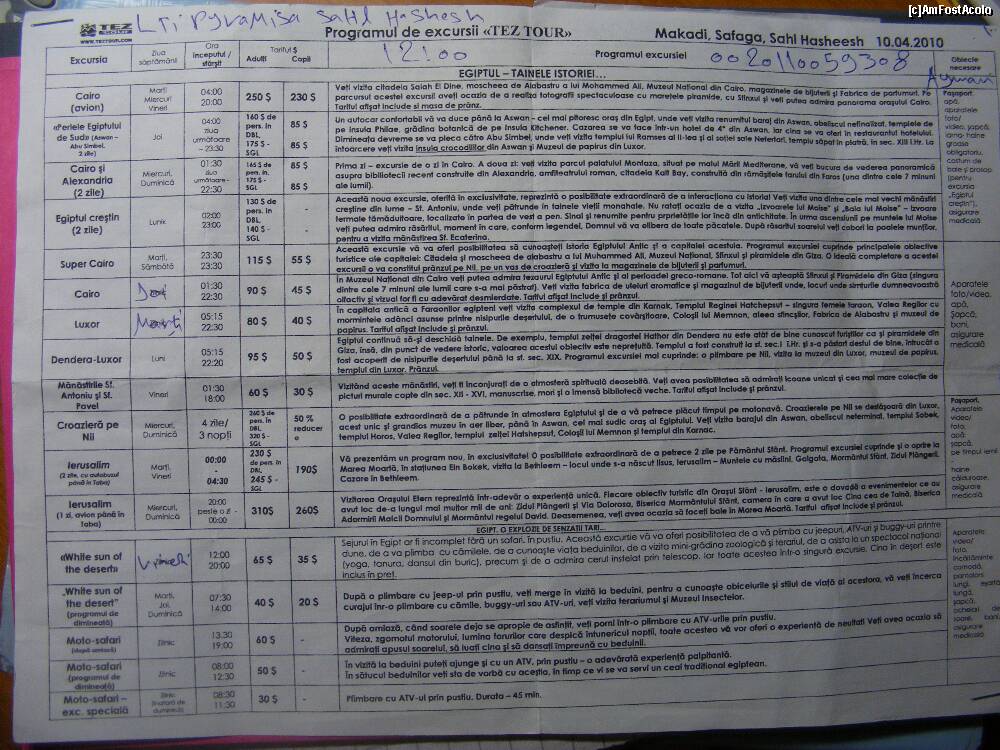 [c]AmFostAcolo
TEZ TOUR
WWW.TEZTOUR.COM
LTI Pyramisa Sahl Hashesh
Programul de excursii «TEZ TOUR»
Makadi, Safaga, Sahl Hasheesh 10.04.2010
Excursia
Ziua săptămânii
Ora începutul / sfârșit
Tariful $
Adulți Copii
12:00
Programul excursiei
0020110059308
Obiecte necesare
EGIPTUL – TAINELE ISTORIEI…
Cairo (avion)
Marți Miercuri Vineri
04:00 20:00
250 $
230 $
Veți vizita citadela Salah El Dine, moscheea de Alabastru a lui Mohammed Ali, Muzeul Național din Cairo, magazinele de bijuterii și Fabrica de parfumuri. Pe
parcursul acestei excursii aveți ocazia de a realiza fotografii spectaculoase cu marețele piramide, cu Sfinxul și veți putea admira panorama orașului Cairo.
Tariful afișat include și masa de prânz.
«Perlele Egiptului de Sud» (Aswan – Abu Simbel, 2 zile)
Joi
04:00 ziua următoare – 23:30
160 $ de pers. în DBL, 175 $ - SGL
85 $
85 $
Un autocar confortabil vă va duce până la Aswan – cel mai pitoresc oraș din Egipt, unde veți vizita renumitul baraj din Aswan, obeliscul nefinalizat, templele de
pe insula Philae, grădina botanică de pe insula Kitchener. Cazarea se va face într-un hotel de 4* din Aswan, iar cina se va oferi în restaurantul hotelului.
Dimineața devreme se va pleca către Abu Simbel, unde veți vizita templul lui Ramses al II-lea și al soției sale Nefertari, templu săpat în piatră, în sec. XIII î.Hr. La
întoarcere veți vizita insula crocodililor din Aswan și Muzeul de papirus din Luxor.
Cairo și Alexandria (2 zile)
Miercuri, Duminică
01:30 ziua următoare - 22:30
165 $ de pers. în 175 $ - SGL
85 $
85 $
Prima zi – excursie de o zi în Cairo. A doua zi: veți vizita parcul palatului Montaza, situat pe malul Mării Mediterane, vă veți bucura de vederea panoramică
asupra bibliotecii recent construite din Alexandria, amfiteatrul roman, citadela Kait Bay, construită din rămășițele farului din Faros (una dintre cele 7 minuni
ale lumii).
Egiptul creștin (2 zile)
Lunix
02:00 23:00
130 $ de pers. în DBL, 140 $ - SGL
Această nouă excursie, oferită în exclusivitate, reprezintă o posibilitate extraordinară de a interacționa cu istoria! Veți vizita una dintre cele mai vechi mănăstiri
creștine din lume – Sf. Antoniu, unde veți pătrunde în tainele vieții monahale. Nu ratați ocazia de a vizita „Izvoarele lui Moise" și „Baia lui Moise" – izvoare
termale tămăduitoare, localizate în partea de vest a pen. Sinai și renumite pentru prprietățile lor încă din antichitate. În urma ascensiunii pe muntele lui Moise
veți putea admira răsăritul, moment în care, conform legendei, Domnul vă va elibera de toate păcatele. După răsăritul soarelui veți coborî la poalele munților,
pentru a vizita mănăstirea Sf. Ecaterina.
Super Cairo
Marți, Sâmbătă
23:30 23:30
115 $
55 $
Această excursie vă va oferi posibilitatea să cunoașteți istoria Egiptului Antic și a capitalei acestuia. Programul excursiei cuprinde principalele obiective
turistice ale capitalei: Citadela și moscheea de alabastru a lui Muhammed Ali, Muzeul Național, Sfinxul și piramidele din Giza. O ideală completare a acestei
excursii o va constitui prânzul pe Nil, pe un vas de croazieră și vizita la magazinele de bijuterii și parfumuri.
Cairo
Joi
01:30 22:30
90 $
45 $
În Muzeul Național din Cairo veți putea admira tezaurul Egiptului Antic și al perioadei greco-romane. Tot aici vă așteaptă Sfinxul și Piramidele din Giza (singura
dintre cele 7 minuni ale lumii care s-a mai păstrat). Veți vizita fabrica de uleiuri aromatice și magazinul de bijuterii unde, locuri unde simțurile dumneavoastră
olfactiv și vizual for fi cu adevărat desmierdate. Tariful afișat include și prânzul.
Luxor
Marți
05:15 22:30
80 $
40 $
În capitala antică a Faraonilor egipteni veți vizita complexul de temple din Karnak, Templul Reginei Hatchepsut – singura femeie faraon, Valea Regilor cu
mormintele adânci ascunse printre nisipurile deșertului, de o trumusețe covârșitoare, Coloșii lui Memnon, aleea sfincșilor, Fabrica de Alabastru și muzeul de
papirus. Tariful afișat include și prânzul.
Dendera-Luxor
Luni
05:15 22:20
95 $
50 $
Egiptul continuă să-și deschidă tainele. De exemplu, templul zeiței dragostei Hathor din Dendera nu este atât de bine cunoscut turiștilor ca și piramidele din
Giza, însă, din punct de vedere istoric, valoarea acestui obiectiv este neprețuită. Templul a fost construit la sf. sec.I î.Hr. și s-a păstrat destul de bine, întrucât a
fost acoperit de nisipurile deșertului până la sf. sec. XIX. Programul excursiei mai cuprinde: o plimbare pe Nil, vizita la muzeul din Luxor, muzeul de papirus,
templul din Luxor. Prânzul.
Mănăstirile Sf. Antoniu și Sf. Pavel
Vineri
01:30 18:00
60 $
30 $
Vizitând aceste mănăstiri, veți fi înconjurați de o atmosferă spirituală deosebită. Veți avea posibilitatea să admirați icoane unicat și cea mai mare colecție de
picturi murale copte din sec. XII - XVI, manuscrise, mori și o imensă bibliotecă veche. Tariful afișat include și prânzul.
Croazieră pe Nil
Miercuri, Duminică
4 zile/ 3 nopți
260 $ de pers. în DBL 320 $ - SGL
50 % reducere
O posibilitate extraordinară de a pătrunde în atmosfera Egiptului și de a vă petrece plăcut timpul pe motonavă. Croazierele pe Nil se desfășoară din Luxor,
acest unic și grandios muzeu în aer liber, până în Aswan, cel mai sudic oraș al Egiptului. Veți vizita barajul din Aswan, obeliscul neterminat, templul Sobek,
templul Horos, Valea Regilor, templul zeiței Hatshepsut, Coloșii lui Memnon și templul din Karnac.
Ierusalim (2 zile, cu autobuzul până în Taba)
Marți, Vineri
00:00 - 04:30
230 $ de pers. în DBL, 245 $ - SGL
190$
Vă prezentăm un program nou, în exclusivitate! O posibilitate extraordinară de a petrece 2 zile pe Pământul Sfânt. Programul excursiei cuprinde și o oprire la
Marea Moartă, în stațiunea Ein Bokek, vizita la Bethleem – locul unde s-a născut Iisus, Ierusalim – Muntele cu măslini, Golgota, Mormântul Sfânt, Zidul Plângerii.
Cazare în Bethleem.
Ierusalim (1 zi, avion până în Taba)
Miercuri, Duminică
20:00 peste o zi - 00:00
310$
260$
Vizitarea Orașului Etern reprezintă într-adevăr o experiență unică. Fiecare obiectiv turistic din Orașul Sfânt - Ierusalim, este o dovadă a evenimentelor ce au
avut loc de-a lungul mai multor mii de ani: Zidul Plângerii și Via Dolorosa, Biserica Mormântului Sfânt, camera în care a avut loc Cina cea de Taină, Biserica
Adormirii Maicii Domnului și Mormântul regelui David. Deasemenea, veți avea ocazia să faceți baie în Marea Moartă. Tariful afișat include și prânzul.
EGIPT. O EXPLOZIE DE SENZAȚII TARI…
«White sun of the desert»
Vineri
12:00 20:00
65 $
35 $
Sejurul în Egipt ar fi incomplet fără un safari în pustiu. Această excursie vă va oferi posibilitatea de a vă plimba cu jeepuri, ATV-uri și buggy-uri printre
dune, de a va plimba cu cămilele, de a cunoaște viața beduinilor, de a vizita mini-grădina zoologică și terariul, de a asista la un spectacol național
(yoga, tanura, dansul din buric), precum și de a admira cerul instelat prin telescop, iar toate acestea într-o singură excursie. Cina în deșert este
inclus în preț.
„White sun of the desert" (programul de dimineață)
Marți, Joi, Duminică
07:30 14:00
40 $
20 $
După o plimbare cu jeep-ul prin pustiu, veți merge în vizită la beduini, pentru a cunoaște obiceiurile și stilul de viață al acestora, vă veți încerca
curajul într-o plimbare cu cămile, buggy-uri sau ATV-uri, veți vizita terariumul și Muzeul Insectelor.
Moto-safari (după amiază)
Zilnic
13.30 19:00
60 $
-
După amiază, când soarele deja se apropie de asfințit, veți porni într-o plimbare cu ATV-urile prin pustiu.
Viteza, zgomotul motorului, lumina farurilor care despică întunericul nopții, toate acestea vă vor oferi o experiență de neuitat! Veți avea ocazia să
admirați apusul soarelui, să luați cina și să dansați împreună cu beduinii.
Moto-safari (programul de dimineață)
Zilnic
08:00 12:30
50 $
-
În vizită la beduini puteți ajunge și cu un ATV, prin pustiu – o adevărată experiență palpitantă.
În sătucul beduinilor veți sta de vorbă cu aceștia, în timp ce vi se va servi un ceai tradițional egiptean.
Moto-safari – exc. specială
Zilnic (în afară de duminecă)
08:30 11:30
30 $
-
Plimbare cu ATV-ul prin pustiu. Durata – 45 min.
Pașaport, apă, aparatele foto/ video, șapcă, iarna- haine groase obligatoriu, costum de baie și prosop (pentru excursia „Egiptul creștin"), asigurare medicală
Aparatele foto/video, apă, Șapcă, bani, asigurare medicală
Pașaport, Aparatele video/ foto, apă, șapcă, pe timpul iernii haine călduroase, asigurare medicală
Aparatele video/ foto, încălțăminte comodă, pantaloni lungi, șapcă, ochelari de soare, bani, asigurare medicală